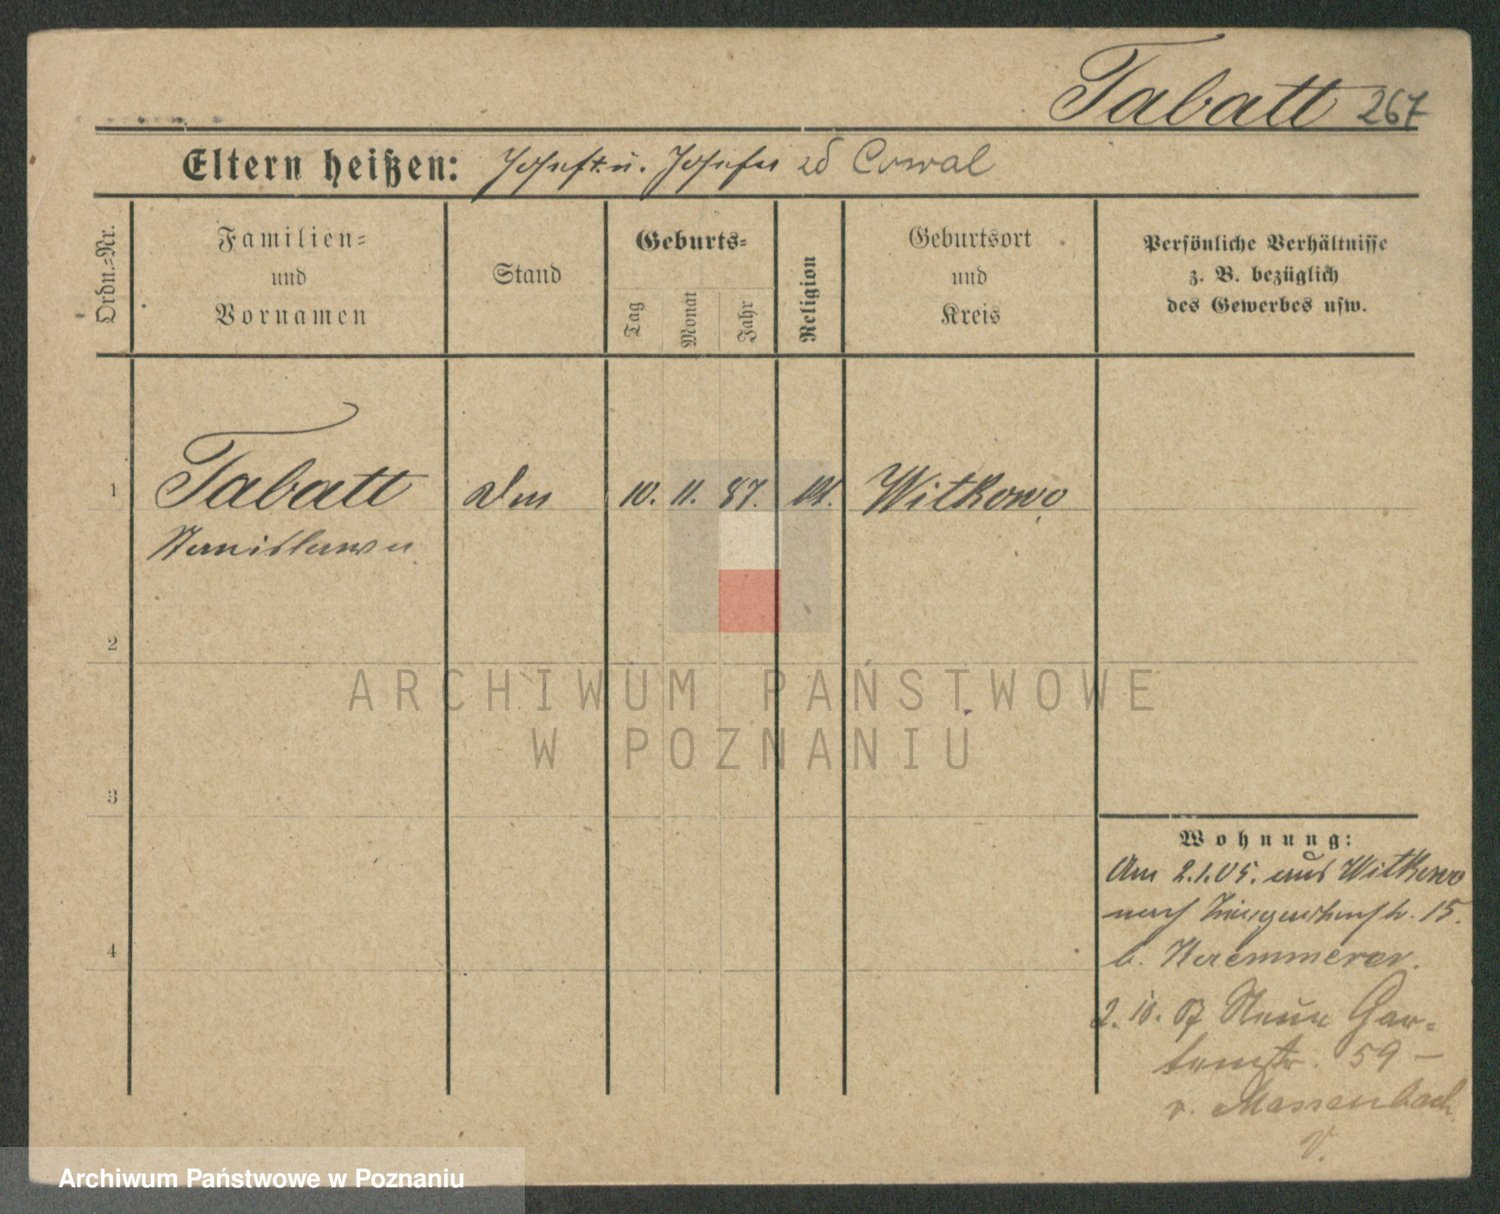 Tabatt 267
Eltern heißen: Josef u. Josefa Cowal
Ordn.-Nr.
Familien-
und
Vornamen
Stand
Geburts-
Tag
Monat
Jahr
Religion
Geburtsort
und
Kreis
Persönliche Verhältnisse
z. B. bezüglich
des Gewerbes usw.
1 Tabatt 10. 11. 87. Witkowo
Stanislawa
2
3
4
ARCHIWUM PAŃSTWOWE
W POZNANIU
Wohnung:
Am 2.1.05. aus Witkowo
nach 15.
b. Kaemmerer.
2. 10. 07 Neue Gar-
tenstr. 59 -
v. Massenbach
Archiwum Państwowe w Poznaniu